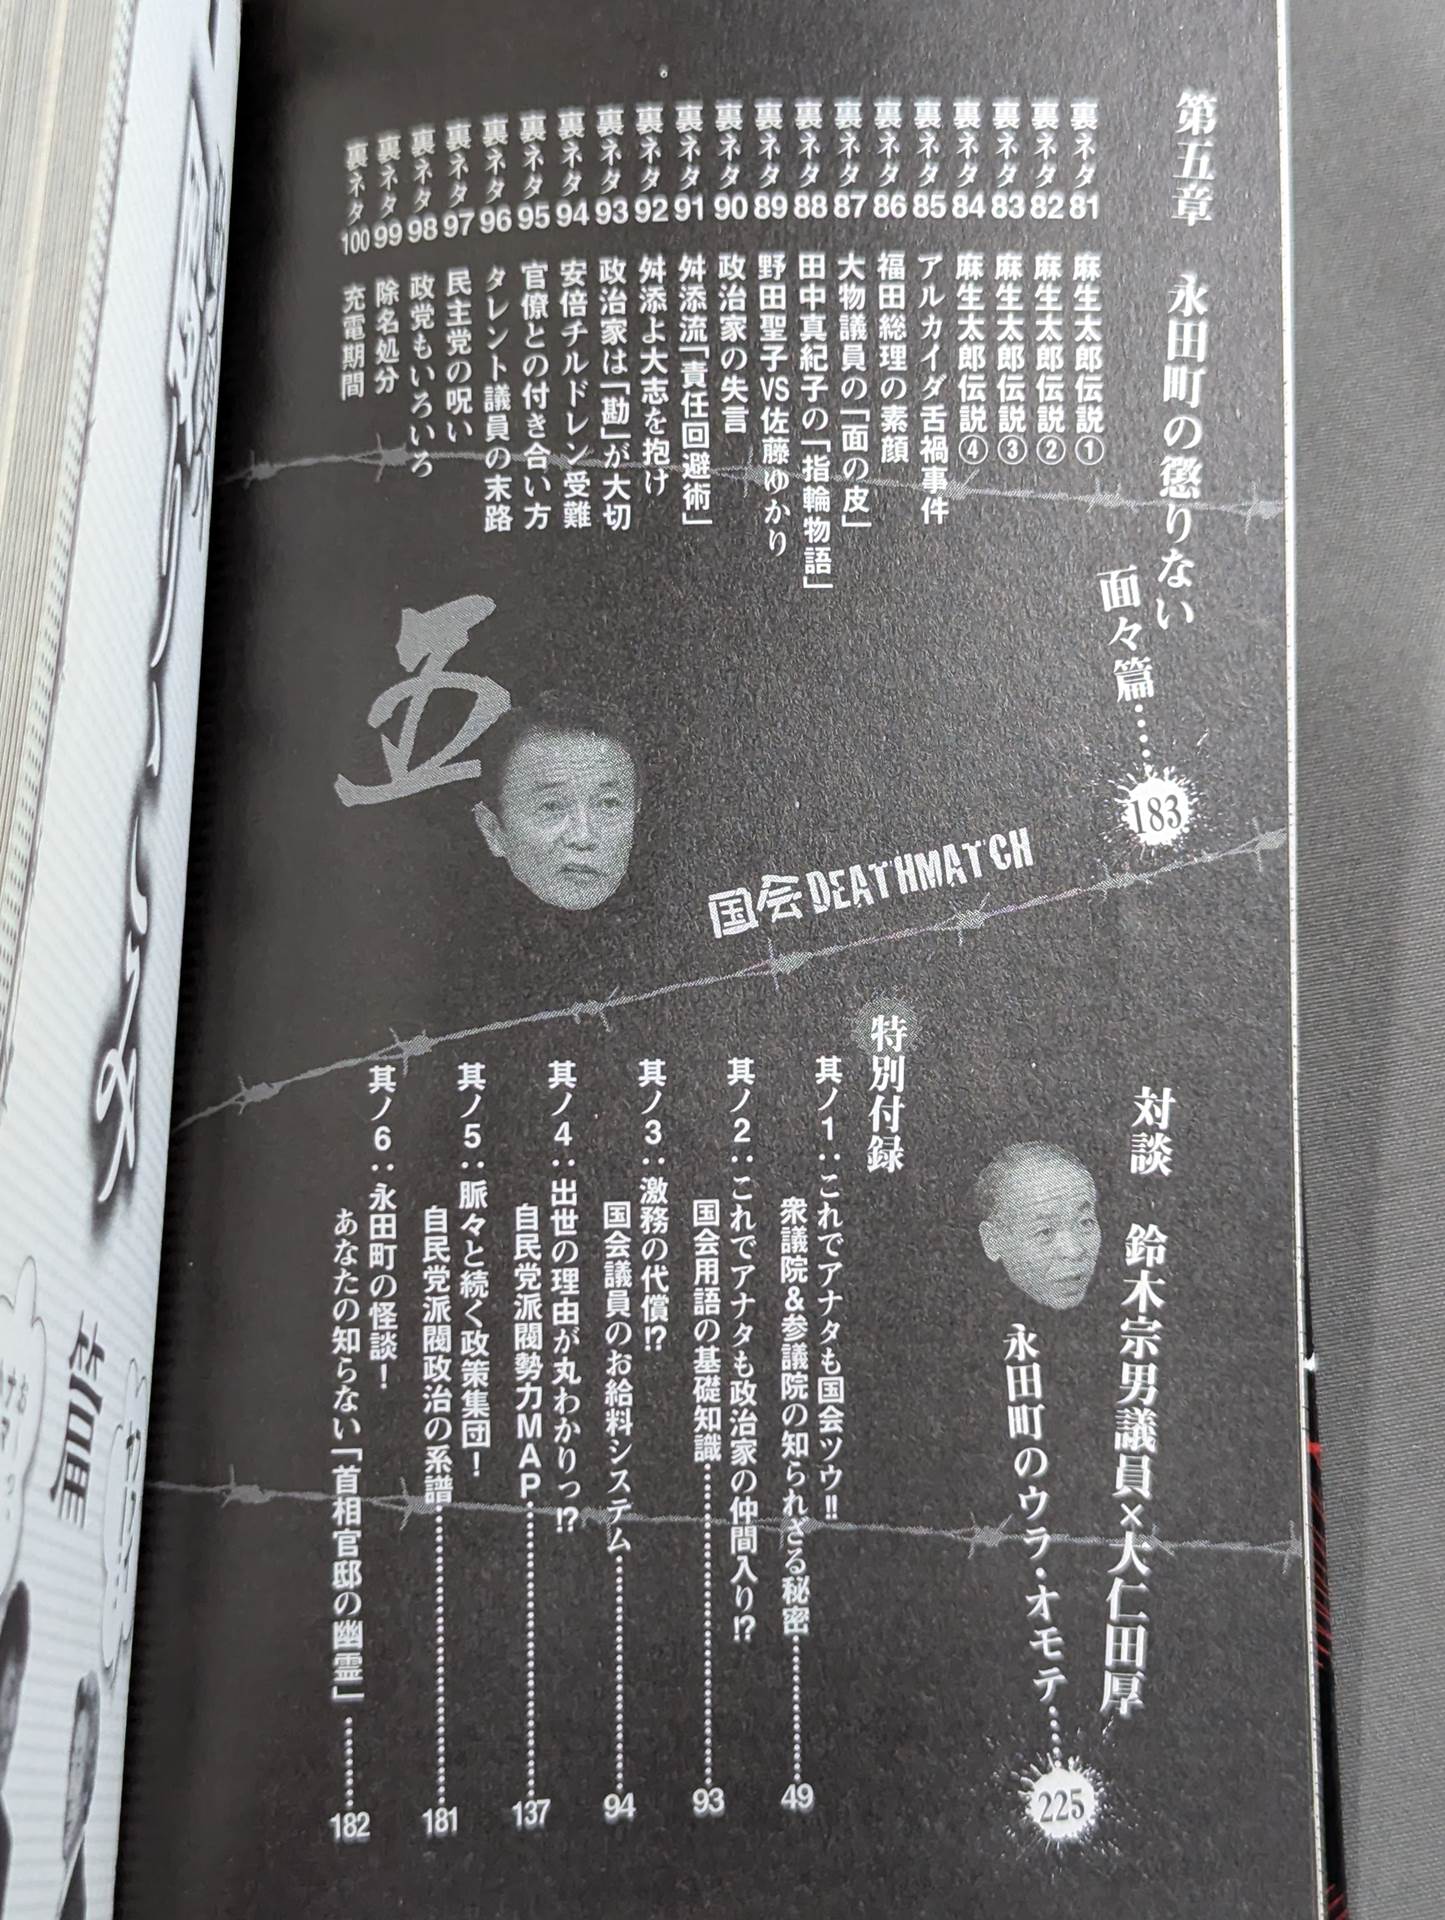 第五章 永田町の懲りない
面々篇……183
裏ネタ81 麻生太郎伝説①
裏ネタ82 麻生太郎伝説②
裏ネタ83 麻生太郎伝説③
裏ネタ84 麻生太郎伝説④
裏ネタ85 アルカイダ舌禍事件
裏ネタ86 福田総理の素顔
裏ネタ87 大物議員の「面の皮」
裏ネタ88 田中真紀子の「指輪物語」
裏ネタ89 野田聖子VS佐藤ゆかり
裏ネタ90 政治家の失言
裏ネタ91 舛添流「責任回避術」
裏ネタ92 舛添よ大志を抱け
裏ネタ93 政治家は「勘」が大切
裏ネタ94 安倍チルドレン受難
裏ネタ95 官僚との付き合い方
裏ネタ96 タレント議員の末路
裏ネタ97 民主党の呪い
裏ネタ98 政党もいろいろ
裏ネタ99 除名処分
裏ネタ100 充電期間
五
国会DEATHMATCH
対談 鈴木宗男議員×大仁田厚
永田町のウラ・オモテ……225
特別付録
其ノ1：これでアナタも国会ツウ!!
衆議院&参議院の知られざる秘密……49
其ノ2：これでアナタも政治家の仲間入り!?
国会用語の基礎知識……93
其ノ3：激務の代償!?
国会議員のお給料システム……94
其ノ4：出世の理由が丸わかりっ!?
自民党派閥勢力MAP……137
其ノ5：脈々と続く政策集団！
自民党派閥政治の系譜……181
其ノ6：永田町の怪談！
あなたの知らない「首相官邸の幽霊」……182
篇